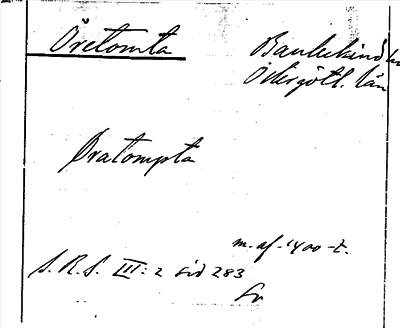 Öretomta
Bankekinds hd
Östergötl. län
Øratompta
m. af 1400-t.
S. R. S. III: 2 sid 283